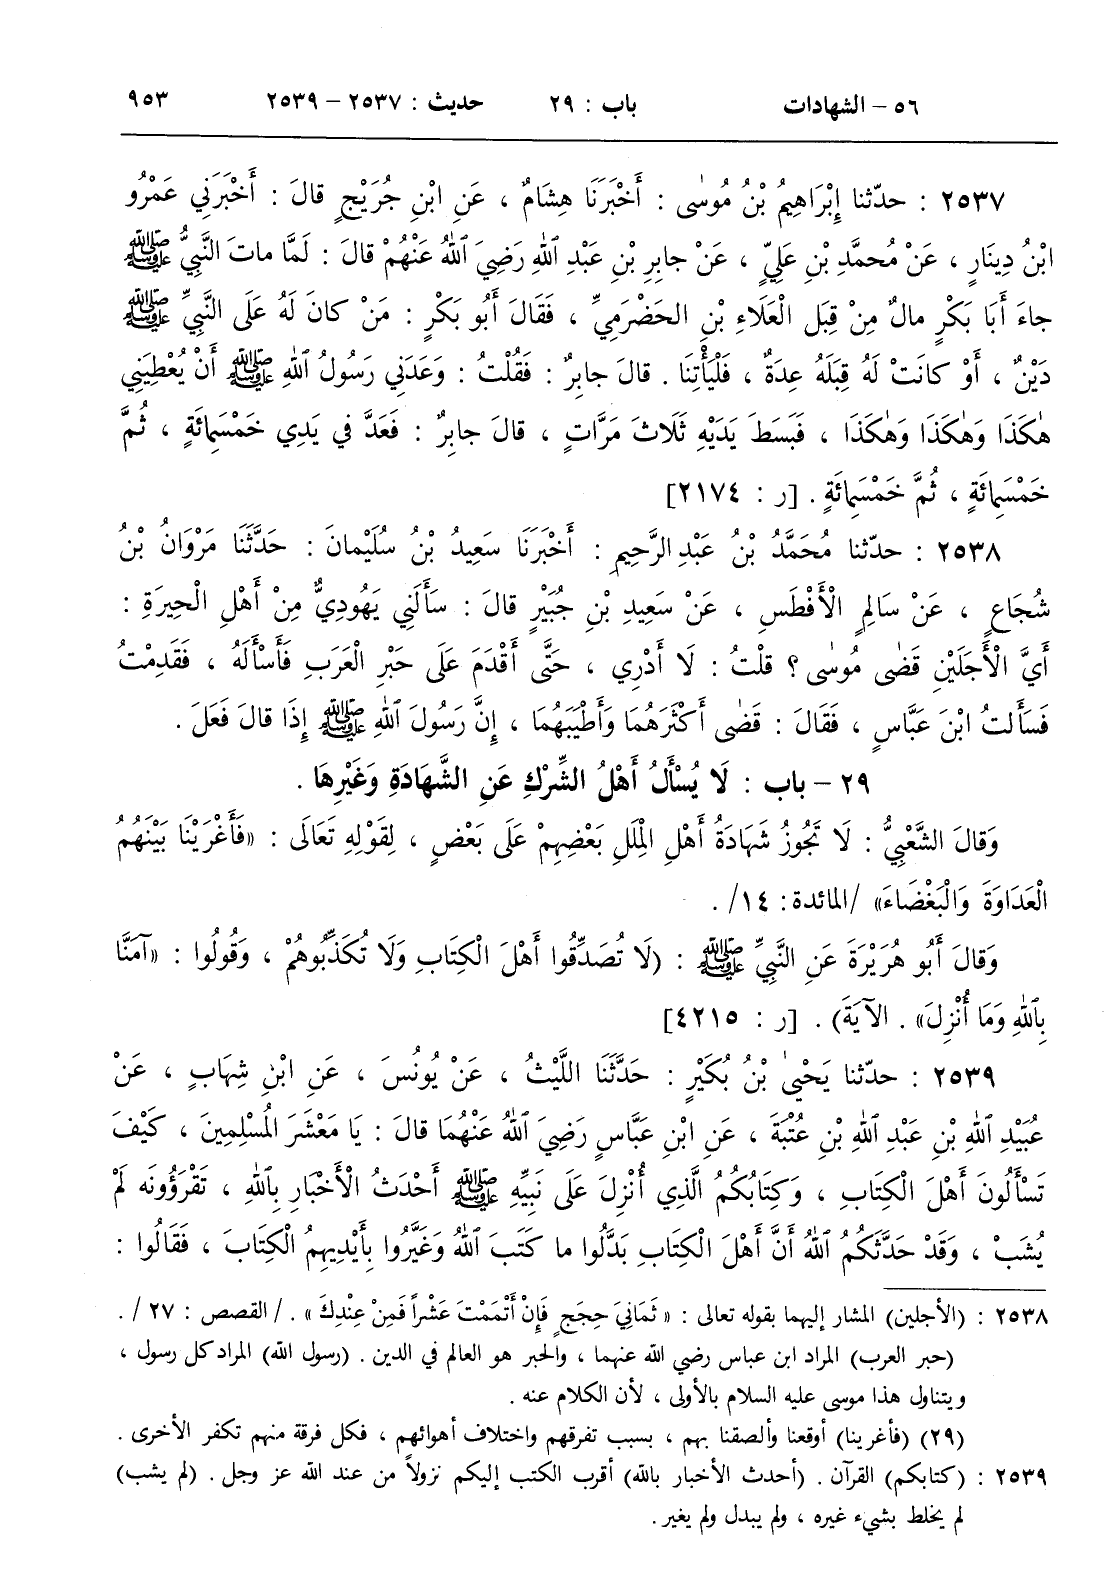 ٥٦ – الشهادات باب : ٢٩ حديث : ٢٥٣٧ – ٢٥٣٩ ٩٥٣
٢٥٣٧ : حدّثنا إِبْرَاهِيمُ بْنُ مُوسٰى : أَخْبَرَنَا هِشَامٌ ، عَنِ ابْنِ جُرَيْجٍ قالَ : أَخْبَرَنِي عَمْرُو
ابْنُ دِينَارٍ ، عَنْ مُحَمَّدِ بْنِ عَلِيٍّ ، عَنْ جابِرِ بْنِ عَبْدِ ٱللهِ رَضِيَ ٱللهُ عَنْهُمْ قالَ : لَمَّا ماتَ النَّبِيُّ ﷺ
جاءَ أَبَا بَكْرٍ مالٌ مِنْ قِبَلِ الْعَلَاءِ بْنِ الحَضْرَمِيِّ ، فَقَالَ أَبُو بَكْرٍ : مَنْ كانَ لَهُ عَلَى النَّبِيِّ ﷺ
دَيْنٌ ، أَوْ كانَتْ لَهُ قِبَلَهُ عِدَةٌ ، فَلْيَأْتِنَا . قالَ جابِرٌ : فَقُلْتُ : وَعَدَنِي رَسُولُ ٱللهِ ﷺ أَنْ يُعْطِيَنِي
هٰكَذَا وَهٰكَذَا وَهٰكَذَا ، فَبَسَطَ يَدَيْهِ ثَلَاثَ مَرَّاتٍ ، قالَ جابِرٌ : فَعَدَّ فِي يَدِي خَمْسَمِائَةٍ ، ثُمَّ
خَمْسَمِائَةٍ ، ثُمَّ خَمْسَمِائَةٍ . [ر : ٢١٧٤]
٢٥٣٨ : حدّثنا مُحَمَّدُ بْنُ عَبْدِ الرَّحِيمِ : أَخْبَرَنَا سَعِيدُ بْنُ سُلَيْمانَ : حَدَّثَنَا مَرْوَانُ بْنُ
شُجَاعٍ ، عَنْ سَالِمٍ الْأَفْطَسِ ، عَنْ سَعِيدِ بْنِ جُبَيْرٍ قالَ : سَأَلَنِي يَهُودِيٌّ مِنْ أَهْلِ الْحِيرَةِ :
أَيَّ الْأَجَلَيْنِ قَضٰى مُوسٰى ؟ قلْتُ : لَا أَدْرِي ، حَتَّى أَقْدَمَ عَلَى حَبْرِ الْعَرَبِ فَأَسْأَلَهُ ، فَقَدِمْتُ
فَسَأَلتُ ابْنَ عَبَّاسٍ ، فَقَالَ : قَضٰى أَكْثَرَهُمَا وَأَطْيَبَهُمَا ، إِنَّ رَسُولَ ٱللهِ ﷺ إِذَا قالَ فَعَلَ .
٢٩ – باب : لَا يُسْأَلُ أَهْلُ الشِّرْكِ عَنِ الشَّهَادَةِ وَغَيْرِهَا .
وَقالَ الشَّعْبِيُّ : لَا تَجُوزُ شَهَادَةُ أَهْلِ الْمِلَلِ بَعْضِهِمْ عَلَى بَعْضٍ ، لِقَوْلِهِ تَعَالَى : «فَأَغْرَيْنَا بَيْنَهُمُ
الْعَدَاوَةَ وَالْبَغْضَاءَ» /المائدة: ١٤/ .
وَقالَ أَبُو هُرَيْرَةَ عَنِ النَّبِيِّ ﷺ : (لَا تُصَدِّقُوا أَهْلَ الْكِتَابِ وَلَا تُكَذِّبُوهُمْ ، وَقُولُوا : «آمَنَّا
بِٱللهِ وَمَا أُنْزِلَ» . الآيَةَ) . [ر : ٤٢١٥]
٢٥٣٩ : حدّثنا يَحْيىٰ بْنُ بُكَيْرٍ : حَدَّثَنَا اللَّيْثُ ، عَنْ يُونُسَ ، عَنِ ابْنِ شِهَابٍ ، عَنْ
عُبَيْدِ ٱللهِ بْنِ عَبْدِ ٱللهِ بْنِ عُتْبَةَ ، عَنِ ابْنِ عَبَّاسٍ رَضِيَ ٱللهُ عَنْهُمَا قالَ : يَا مَعْشَرَ الْمُسْلِمِينَ ، كَيْفَ
تَسْأَلُونَ أَهْلَ الْكِتَابِ ، وَكِتَابُكُمُ الَّذِي أُنْزِلَ عَلَى نَبِيِّهِ ﷺ أَحْدَثُ الْأَخْبَارِ بِٱللهِ ، تَقْرَؤُونَه لَمْ
يُشَبْ ، وَقَدْ حَدَّثَكُمُ ٱللهُ أَنَّ أَهْلَ الْكِتَابِ بَدَّلُوا ما كَتَبَ ٱللهُ وَغَيَّرُوا بِأَيْدِيهِمُ الْكِتَابَ ، فَقَالُوا :
٢٥٣٨ : (الأجلين) المشار إليهما بقوله تعالى : « ثَمَانِيَ حِجَجٍ فَإِنْ أَتْمَمْتَ عَشْراً فَمِنْ عِنْدِكَ » . / القصص : ٢٧ / .
(حبر العرب) المراد ابن عباس رضي الله عنهما ، والحبر هو العالم في الدين . (رسول الله) المراد كل رسول ،
ويتناول هذا موسى عليه السلام بالأولى ، لأن الكلام عنه .
(٢٩) (فأغرينا) أوقعنا وألصقنا بهم ، بسبب تفرقهم واختلاف أهوائهم ، فكل فرقة منهم تكفر الأخرى .
٢٥٣٩ : (كتابكم) القرآن . (أحدث الأخبار بالله) أقرب الكتب إليكم نزولاً من عند الله عز وجل . (لم يشب)
لم يخلط بشيء غيره ، ولم يبدل ولم يغير .